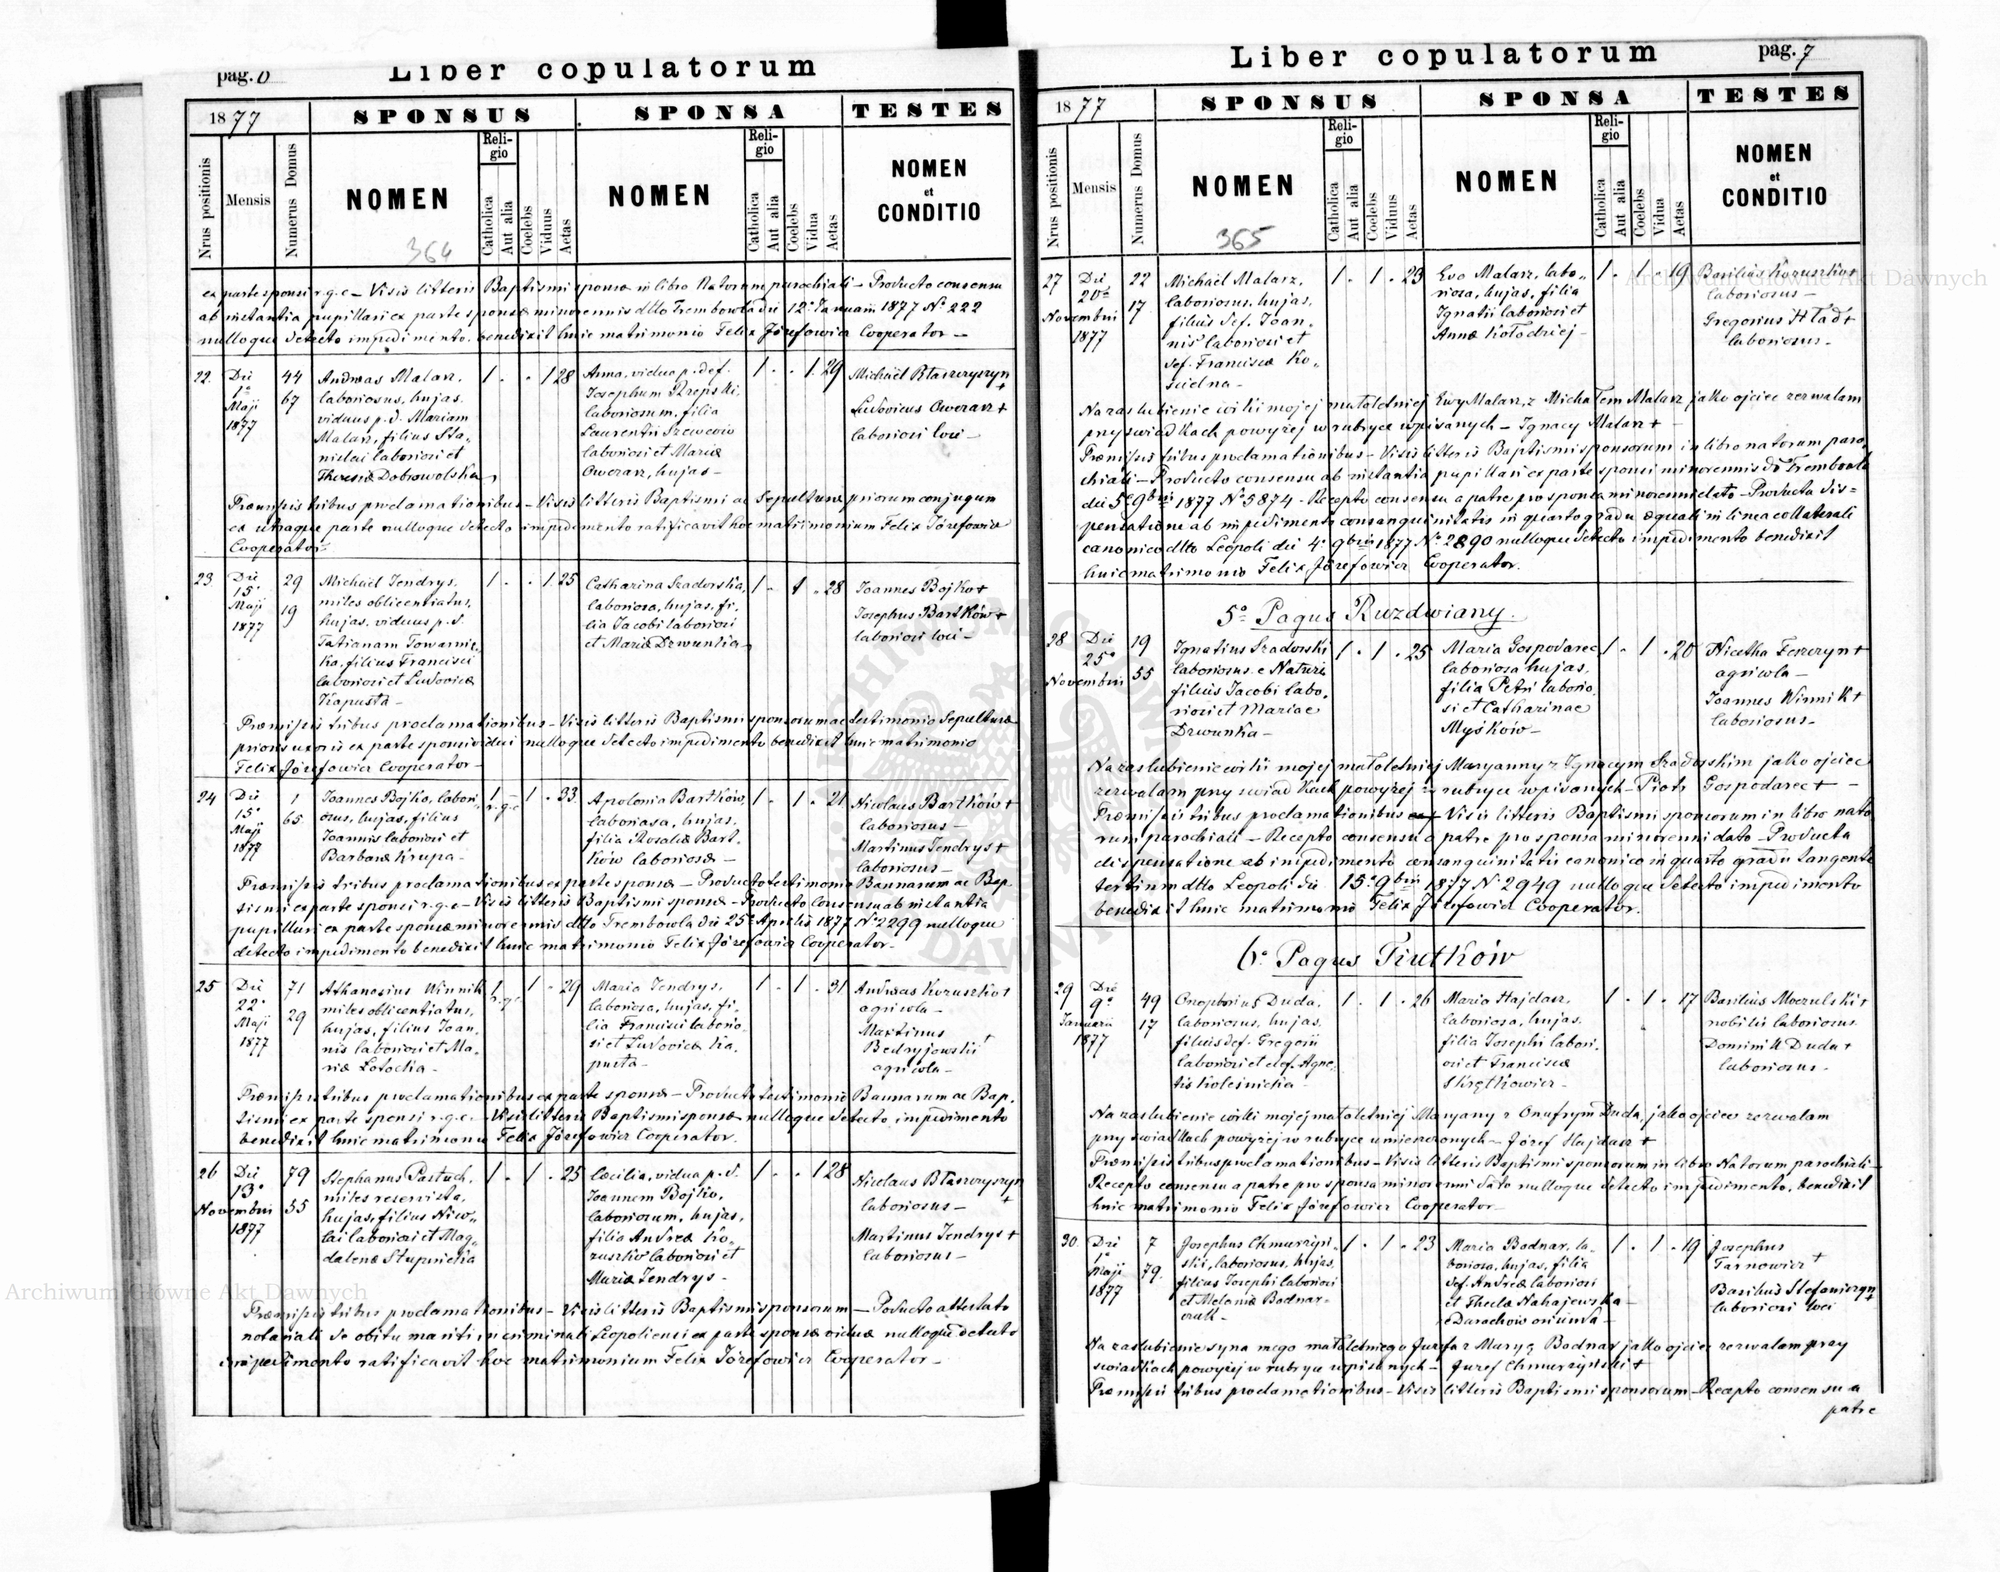 pag. 6
Liber copulatorum
1877
SPONSUS
SPONSA
TESTES
Nrus positionis
Mensis
Numerus Domus
NOMEN
Religio
Catholica
Aut alia
Coelebs
Viduus
Aetas
NOMEN
Religio
Catholica
Aut alia
Coelebs
Vidua
Aetas
NOMEN
et
CONDITIO
364
ex parte sponsi r.g.c – Visis litteris Baptismi sponsæ in libro Natorum parochiali – Producto consensu
ab instantia pupillari ex parte sponsæ minorennis dtto Trembowla dii 12ª Januarii 1877 Nº 222
nulloque detecto impedimento, benedixit huic matrimonio Felix Józefowicz Cooperator –
22.
Dii
1ª
Maji
1877
44
67
Andreas Malarz,
laboriosus, hujas,
viduus p.d. Mariam
Malarz, filius Sta-
nislai laboriosi et
Theresiæ Dobrowolska
1 . . 1 28
Anna, vidua p. def.
Josephum Rzepski,
laboriosum, filia
Laurentii Szewciw
laboriosi et Mariæ
Owczarz, hujas –
1 . . 1. 29
Michaël Błaszczyszyn
+
Ludovicus Owczarz +
laboriosi loci –
Præmissis tribus proclamationibus – Visis litteris Baptismi ac Sepulturæ priorum conjugum
ex utraque parte nulloque detecto impedimento ratificavit hoc matrimonium Felix Józefowicz
Cooperator –
23.
Dii
15ª
Maji
1877
29
19
Michaël Jendrys,
miles oblicentiatus,
hujas, viduus p.d.
Tatianam Towarnic-
ka, filius Francisci
laboriosi et Ludovicæ
Kapusta –
1 . . 1 25
Catharina Szadorska,
laboriosa, hujas, fi-
lia Jacobi laboriosi
et Mariæ Dzwunka
1 . 1 . 28
Joannes Bojko +
Josephus Bartków +
laboriosi loci –
Præmissis tribus proclamationibus – Visis litteris Baptismi sponsorum ac testimonio Sepulturæ
prioris uxoris ex parte sponsi vidui nulloque detecto impedimento benedixit huic matrimonio
Felix Józefowicz Cooperator –
24
Dii
15ª
Maji
1877
1
65
Joannes Bojko, labori-
osus, hujas, filius
Joannis laboriosi et
Barbaræ Krupa –
1 – 1 . 33
r.g.c
Apolonia Bartków,
laboriosa, hujas,
filia Rosaliæ Bart-
ków laboriosæ –
1 . 1 . 21
Nicolaus Bartków +
laboriosus –
Martinus Jendrys +
laboriosus –
Præmissis tribus proclamationibus ex parte sponsæ – Producto testimonio Bannorum ac Bap-
tismi ex parte sponsi r.g.c – Visis litteris Baptismi sponsæ – Producto consensu ab instantia
pupillari ex parte sponsæ minorennis dtto Trembowla dii 25ª Aprilis 1877 Nº 2299 nulloque
detecto impedimento benedixit huic matrimonio Felix Józefowicz Cooperator –
25
Dii
22ª
Maji
1877
71
29
Athanasius Winnik
miles oblicentiatus,
hujas, filius Joan-
nis laboriosi et Ma-
riæ Lotocka –
1 1 . 29
r.g.c
Maria Jendrys,
laboriosa, hujas, fi-
lia Francisci laborio-
si et Ludovicæ Ka-
pusta –
1 . 1 . 31
Andreas Kozuszko +
agricola –
Martinus
Bedryjowski +
agricola –
Præmissis tribus proclamationibus ex parte sponsæ – Producto testimonio Bannorum ac Bap-
tismi ex parte sponsi r.g.c. – Visis litteris Baptismi sponsæ nulloque detecto impedimento
benedixit huic matrimonio Felix Józefowicz Cooperator.
26
Dii
13ª
Novembris
1877
79
55
Stephanus Pastuch,
miles reservista,
hujas, filius Nico-
lai laboriosi et Mag-
dalenæ Stupnicka
1 . 1 . 25
Cæcilia, vidua p.d.
Joannem Bojko,
laboriosum, hujas,
filia Andreæ Ko-
zuszko laboriosi et
Mariæ Jendrys –
1 . . 1 28
Nicolaus Błaszczyszyn
+
laboriosus –
Martinus Jendrys +
laboriosus –
Præmissis tribus proclamationibus – Visis litteris Baptismi sponsorum – Producto attestato
notariali de obitu mariti in criminali Leopoliensi ex parte sponsæ viduæ nulloque detecto
impedimento ratificavit hoc matrimonium Felix Józefowicz Cooperator –
pag. 7
Liber copulatorum
1877
SPONSUS
SPONSA
TESTES
Nrus positionis
Mensis
Numerus Domus
NOMEN
Religio
Catholica
Aut alia
Coelebs
Viduus
Aetas
NOMEN
Religio
Catholica
Aut alia
Coelebs
Vidua
Aetas
NOMEN
et
CONDITIO
365
27
Dii
20ª
Novembris
1877
22
17
Michaël Malarz,
laboriosus, hujas,
filius def. Joan-
nis laboriosi et
def. Franciscæ Ko-
ścielna –
1 . 1 . 23
Eva Malarz, labo-
riosa, hujas, filia
Ignatii laboriosi et
Annæ Kołodziej –
1 . 1 . 19
Basilius Kozuszko +
laboriosus –
Gregorius Hład +
laboriosus –
Na zaslubienie córki mojej małoletniej Ewy Malarz, z Michałem Malarz jako ojciec zezwalam
przy swiadkach powyżej w rubryce wpisanych – Ignacy Malarz +
Præmissis tribus proclamationibus – Visis litteris Baptismi sponsorum in libro natorum paro-
chiali – Producto consensu ab instantia pupillari ex parte sponsi minorennis dto Trembowla
dii 5ª 9bris 1877 Nº 5874 – Recepto consensu a patre pro sponsa minorenni dato – Producta dis-
pensatione ab impedimento consanguinitatis in quarto gradu æquali in linea collaterali
canonico dtto Leopoli dii 4ª 9bris 1877 Nº 2890 nulloque detecto impedimento benedixit
huic matrimonio Felix Józefowicz Cooperator.
5º Pagus Ruzdwiany.
28
Dii
25ª
Novembris
19
55
Ignatius Szadorski
laboriosus e Naturæ
filius Jacobi labo-
riosi et Mariae
Dzwunka –
1 . 1 . 25
Maria Gospodarec
laboriosa hujas,
filia Petri laborio-
si et Catharinae
Myśków –
1 . 1 . 20
Nicetha Fenczyn +
agricola –
Joannes Winnik +
laboriosus –
Na zaslubienie córki mojej małoletniej Maryanny z Ignacym Szadorskim jako ojciec
zezwalam przy swiadkach powyżej w rubryce wpisanych – Piotr Gospodarec + –
Præmissis tribus proclamationibus Visis litteris Baptismi sponsorum in libro nato-
rum parochiali – Recepto consensu a patre pro sponsa minorenni dato – Producta
dispensatione ab impedimento consanguinitatis canonico in quarto gradu tangente
tertium dtto Leopoli dii 15ª 9bris 1877 Nº 2949 nulloque detecto impedimento
benedixit huic matrimonio Felix Józefowicz Cooperator.
6º Pagus Tiutków
29
Dii
9ª
Januarii
1877
49
17
Onophrius Duda,
laboriosus, hujas,
filius def. Gregorii
laboriosi et def. Agne-
tis Koleinicka –
1 . 1 . 26
Maria Hajdasz,
laboriosa, hujas,
filia Josephi labori-
osi et Franciscæ
Skrętkowicz –
1 . 1 . 17
Basilius Moczulski +
nobilis laboriosus
Dominik Duda +
laboriosus –
Na zaslubienie córki mojej małoletniej Maryany z Onufrym Duda, jako ojciec zezwalam
przy swiadkach powyżej w rubryce umieszczonych – Józef Hajdasz +
Præmissis tribus proclamationibus – Visis litteris Baptismi sponsorum in libro Natorum parochiali –
Recepto consensu a patre pro sponsa minorenni dato nulloque detecto impedimento, benedixit
huic matrimonio Felix Józefowicz Cooperator –
30
Dii
1ª
Maji
1877
7
79.
Josephus Chmurzyń-
ski, laboriosus, hujas,
filius Josephi laboriosi
et Melaniæ Bodnar-
czuk –
1 . 1 . 23
Maria Bodnar, la-
boriosa, hujas, filia
def. Andreæ laboriosi
et Theclæ Nahajewska –
e Darachow oriunda –
1 . 1 . 19
Josephus
Tarnowicz +
Basilius Stefaniszyn
+
laboriosi loci
Na zaslubienie syna mego małoletniego Jurfa z Maryą Bodnar jako ojciec zezwalam przy
swiadkach powyżej w rubryce wpisanych – Jurzef Chmurzyński +
Præmissis tribus proclamationibus – Visis litteris Baptismi sponsorum – Recepto consensu a
patre
Archiwum Główne Akt Dawnych
Archiwum Główne Akt Dawnych
ARCHIWUM GŁÓWNE AKT DAWNYCH